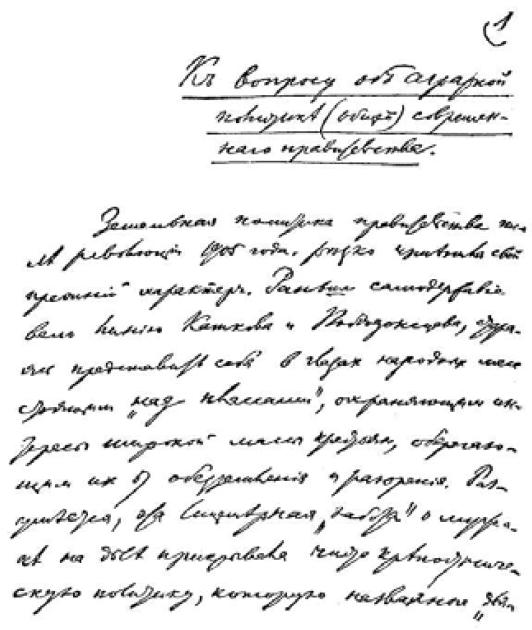 1
Къ вопросу объ аграрной
политикѣ (общей) современ-
наго правительства.
Земельная политика правительства пос-
лѣ революціи 1905 года рѣзко измѣнила свой
прежній характеръ. Раньше самодержавіе
вело линію Каткова и Побѣдоносцева, стара-
ясь представить себя въ глазахъ народныхъ массъ
стоящимъ „надъ классами", охраняющимъ ин-
тересы широкой массы крестьянъ, оберегаю-
щимъ ихъ отъ обезземеленія и разоренія. Раз-
умѣется, эта лицемѣрная „забота" о мужи-
кѣ на дѣлѣ прикрывала чисто крѣпостниче-
скую политику, которую названные „дѣя-